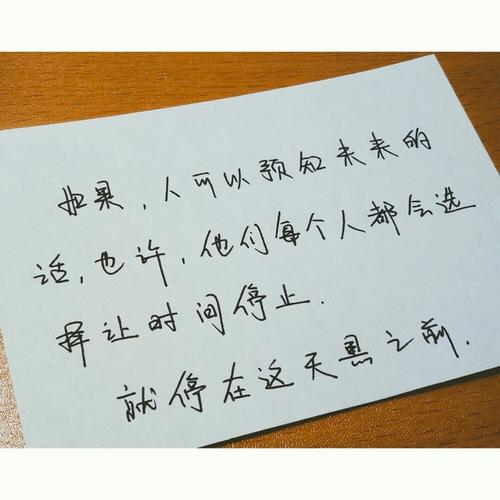 如果,人可以预知未来的
话,也许,他们每个人都会选
择让时间停止.
就停在这天黑之前.